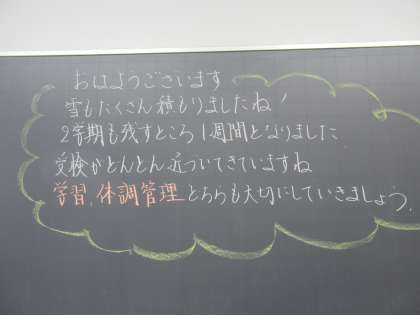 おはようございます
雪もたくさん積もりましたね!
2学期も残すところ1週間となりました
受検がどんどん近づいてきていますね
学習、体調管理どちらも大切にしていきましょう。